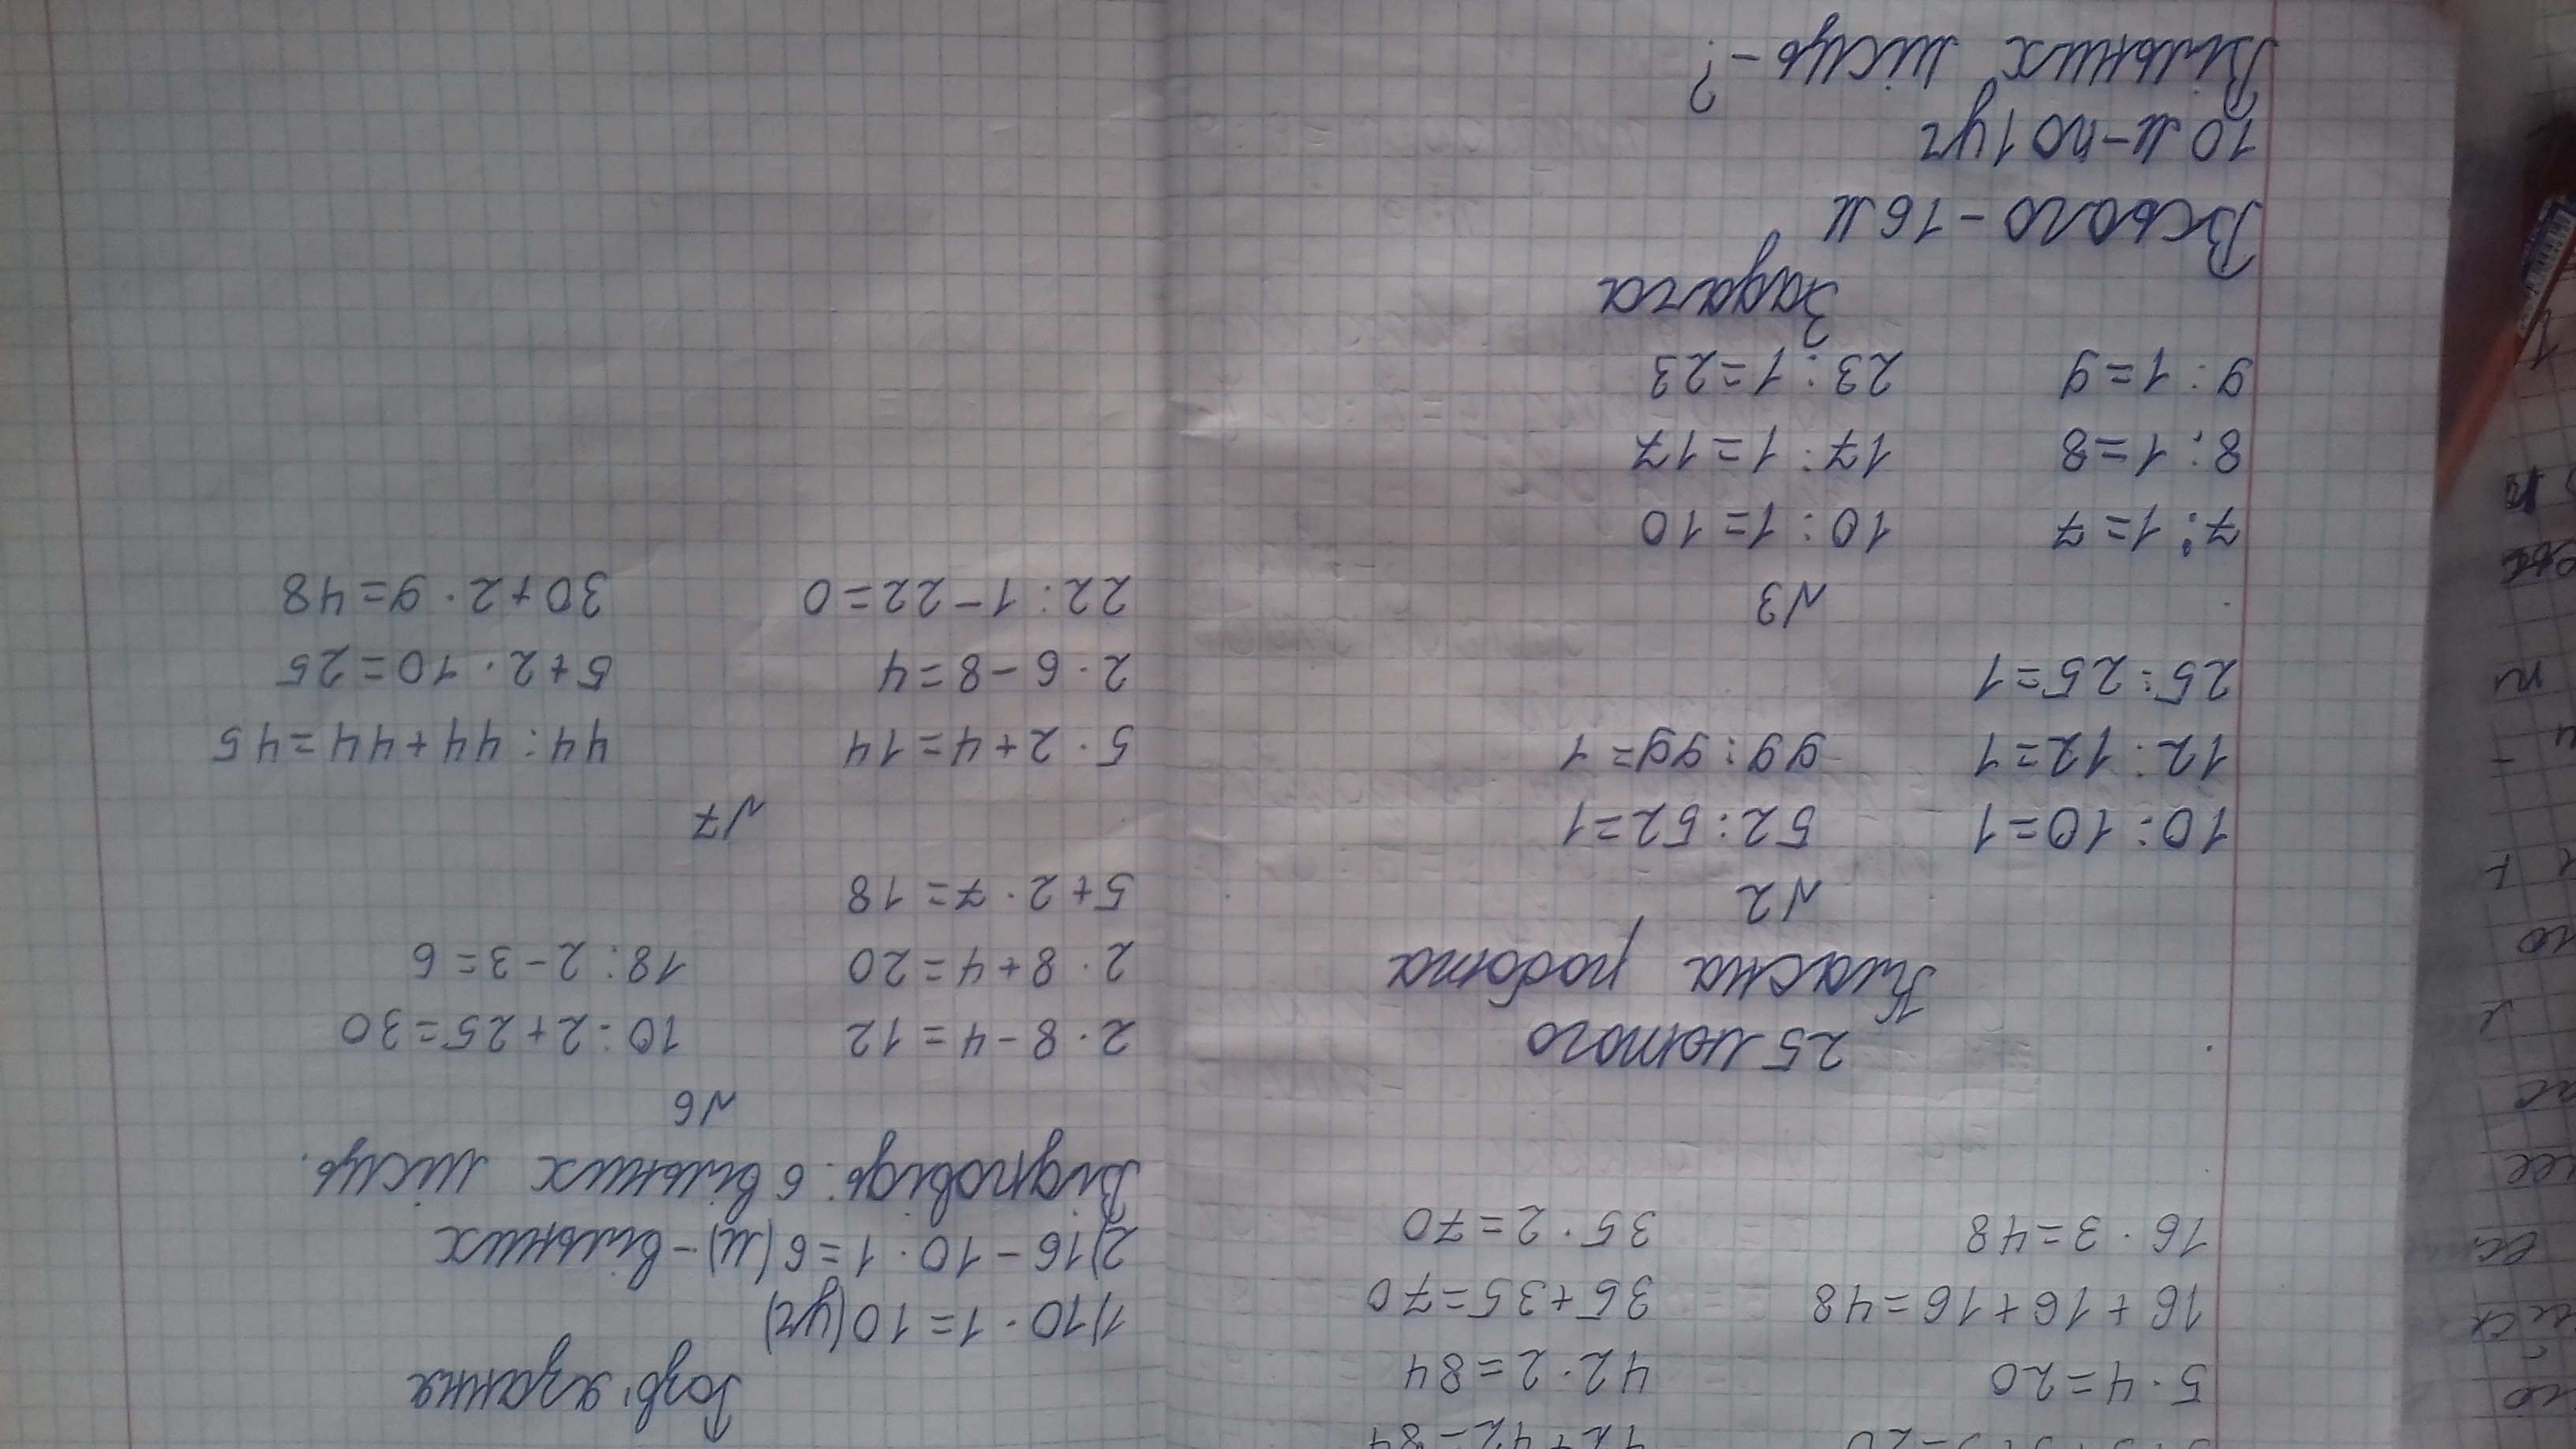 42+42=84
5·4=20 42·2=84
16+16+16=48 35+35=70
16·3=48 35·2=70
25 лютого
Класна робота
№2
10:10=1 52:52=1
12:12=1 99:99=1
25:25=1
№3
7:1=7 10:1=10
8:1=8 17:1=17
9:1=9 23:1=23
Задача
Всього - 16 м
10 м - по 1 уч
Вільних місць - ?
Розв'язання
1) 10·1=10(уч)
2) 16-10·1=6(м) - вільних
Відповідь: 6 вільних місць.
№6
2·8-4=12 10:2+25=30
2·8+4=20 18:2-3=6
5+2·7=18
№7
5·2+4=14 44:44+44=45
2·6-8=4 5+2·10=25
22:1-22=0 30+2·9=48